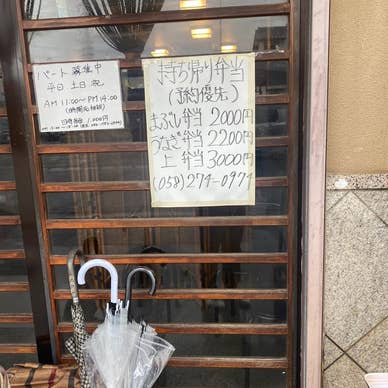 パート募集中
平日 土日 祝
AM 11:00〜PM 14:00
時給 1,000円
持ち帰り弁当
(予約優先)
まぶし弁当 2000円
うなぎ弁当 2200円
上 弁当 3000円
(058)274-0974